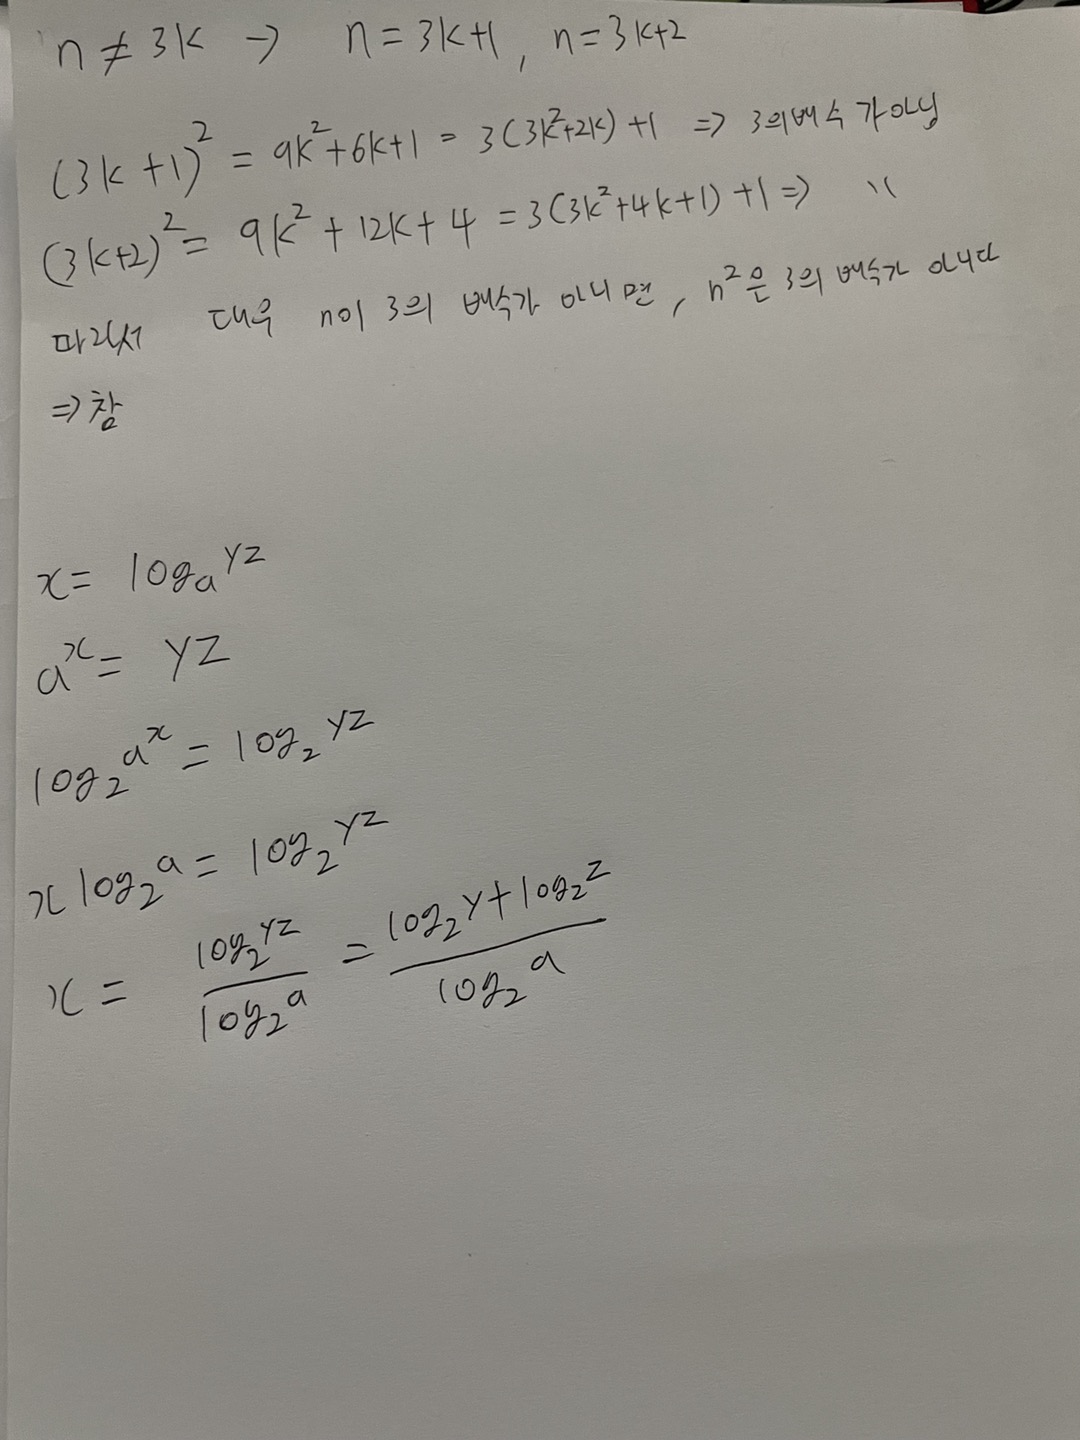 n ≠ 3k → n = 3k+1, n = 3k+2
(3k+1)² = 9k²+6k+1 = 3(3k²+2k)+1 ⇒ 3의 배수가 아님
(3k+2)² = 9k²+12k+4 = 3(3k²+4k+1)+1 ⇒ 〃
따라서 대우 n이 3의 배수가 아니면, n²은 3의 배수가 아니다
⇒ 참
x = logₐ yz
aˣ = yz
log₂ aˣ = log₂ yz
x log₂ a = log₂ yz
x = (log₂ yz)/(log₂ a) = (log₂ y + log₂ z)/(log₂ a)